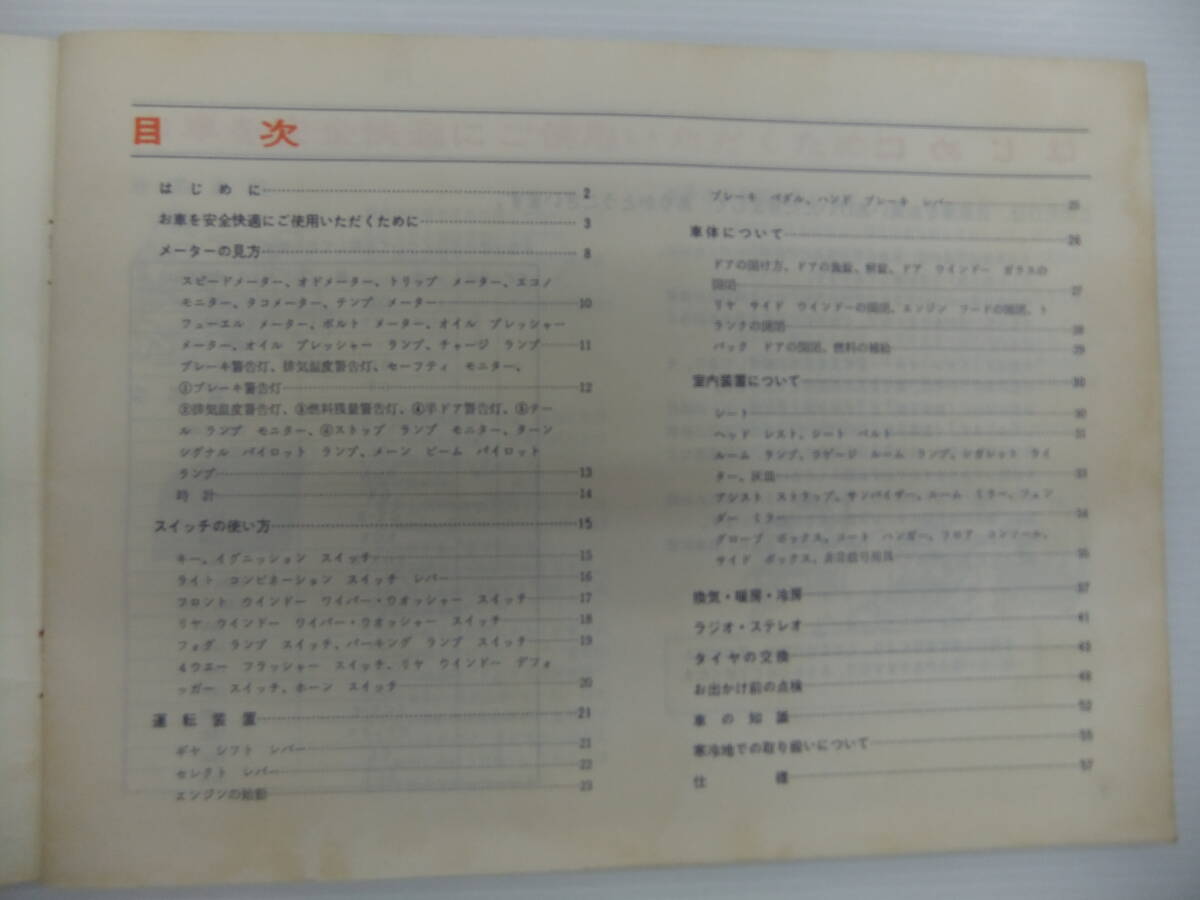 目次
はじめに 2
お車を安全快適にご使用いただくために 3
メーターの見方 8
スピードメーター、オドメーター、トリップ メーター、エコノ
モニター、タコメーター、テンプ メーター 10
フューエル メーター、ボルト メーター、オイル プレッシャー
メーター、オイル プレッシャー ランプ、チャージ ランプ 11
ブレーキ警告灯、排気温度警告灯、セーフティ モニター、
①ブレーキ警告灯 12
②排気温度警告灯、③燃料残量警告灯、④半ドア警告灯、⑤テー
ル ランプ モニター、⑥ストップ ランプ モニター、ターン
シグナル パイロット ランプ、メーン ビーム パイロット
ランプ 13
時計 14
スイッチの使い方 15
キー、イグニッション スイッチ 15
ライト コンビネーション スイッチ レバー 16
フロント ウインドー ワイパー・ウオッシャー スイッチ 17
リヤ ウインドー ワイパー・ウオッシャー スイッチ 18
フォグ ランプ スイッチ、パーキング ランプ スイッチ 19
4ウエー フラッシャー スイッチ、リヤ ウインドー デフォ
ッガー スイッチ、ホーン スイッチ 20
運転装置 21
ギヤ シフト レバー 21
セレクト レバー 22
エンジンの始動 23
ブレーキ ペダル、ハンド ブレーキ レバー 25
車体について 26
ドアの開け方、ドアの施錠、解錠、ドア ウインドー ガラスの
開閉 27
リヤ サイド ウインドーの開閉、エンジン フードの開閉、ト
ランクの開閉 28
バック ドアの開閉、燃料の補給 29
室内装置について 30
シート 30
ヘッド レスト、シート ベルト 31
ルーム ランプ、ラゲージ ルーム ランプ、シガレット ライ
ター、灰皿 33
アシスト ストラップ、サンバイザー、ルーム ミラー、フェン
ダー ミラー 34
グローブ ボックス、コート ハンガー、フロア コンソール、
サイド ボックス、非常信号用具 35
換気・暖房・冷房 37
ラジオ・ステレオ 41
タイヤの交換 43
お出かけ前の点検 48
車の知識 52
寒冷地での取り扱いについて 55
仕様 57